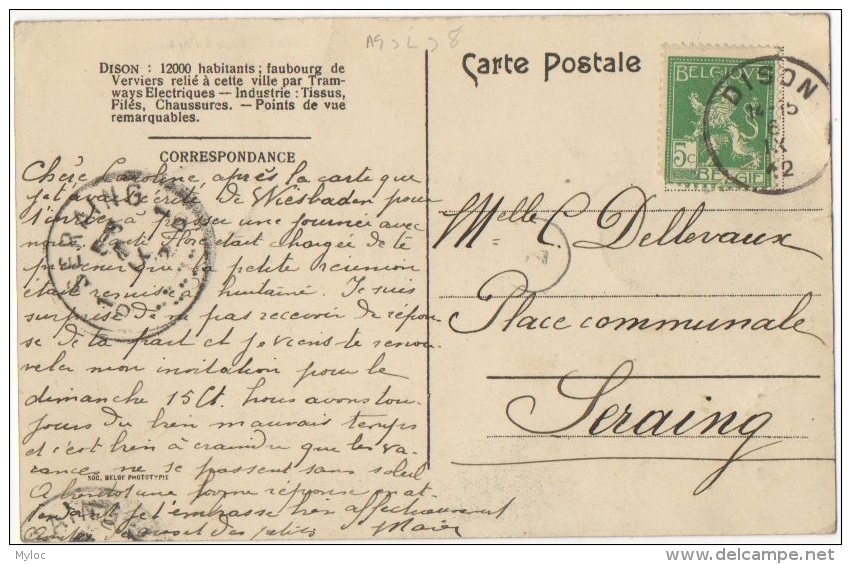 A9 > L > 8
DISON : 12000 habitants ; faubourg de
Verviers relié à cette ville par Tram-
ways Electriques — Industrie : Tissus,
Filés, Chaussures. — Points de vue
remarquables.
CORRESPONDANCE
Carte Postale
BELGIQUE
5c
BELGIË
DISON
14-15
IX
12
SERAING
Chère Caroline, après la carte que
je t'avais écrite de Wiesbaden pour
t'inviter à passer une journée avec
nous, tante Flore était chargée de te
prévenir que la petite réunion
était remise à huitaine. Je suis
surprise de ne pas recevoir de répon-
se de ta part et je viens te renou-
veler mon invitation pour le
dimanche 15 Ct. Nous avons tou-
jours du bien mauvais temps
et c'est bien à craindre que les va-
cances ne se passent sans soleil
SOC. BELGE PHOTOTYPIE
A bientôt une bonne réponse en at-
tendant je t'embrasse bien affectueusement
des petits
Maria
Melle C. Dellevaux
Place communale
Seraing
Myloc
delcampe.net